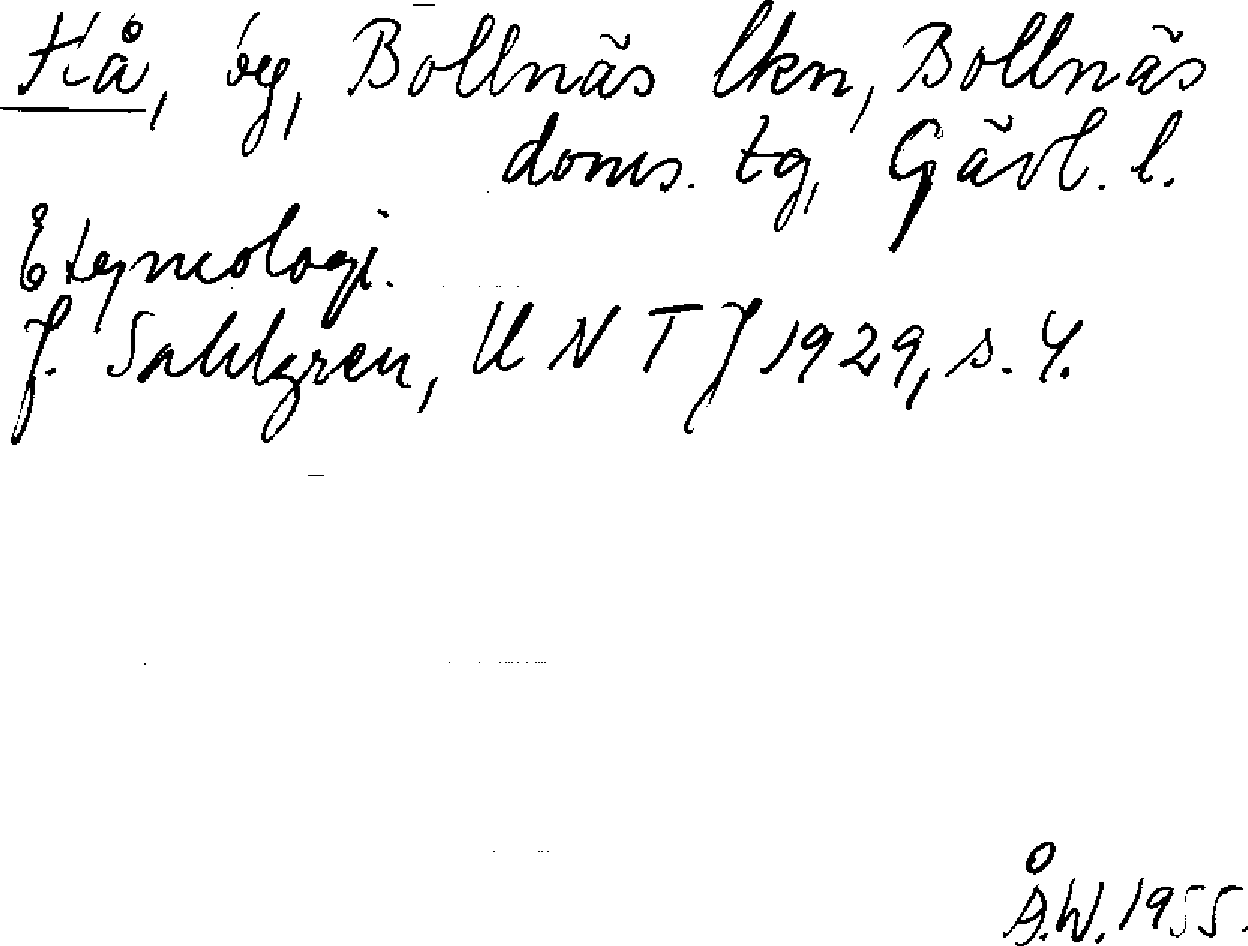 Hå, by, Bollnäs lkn, Bollnäs
doms. tg, Gävl. l.
Etymologi.
J. Sahlgren, UNTJ 1929, s. 4.
Å.W. 1955.